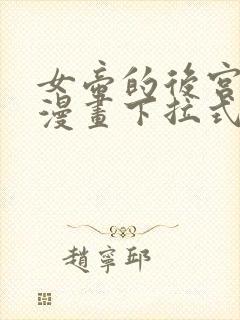 女帝的後宮
漫畫下拉式
趙寧邱